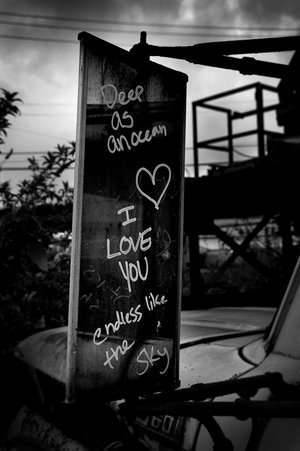 Deep
as
an ocean
I
LOVE
YOU
endless like
the
SKY